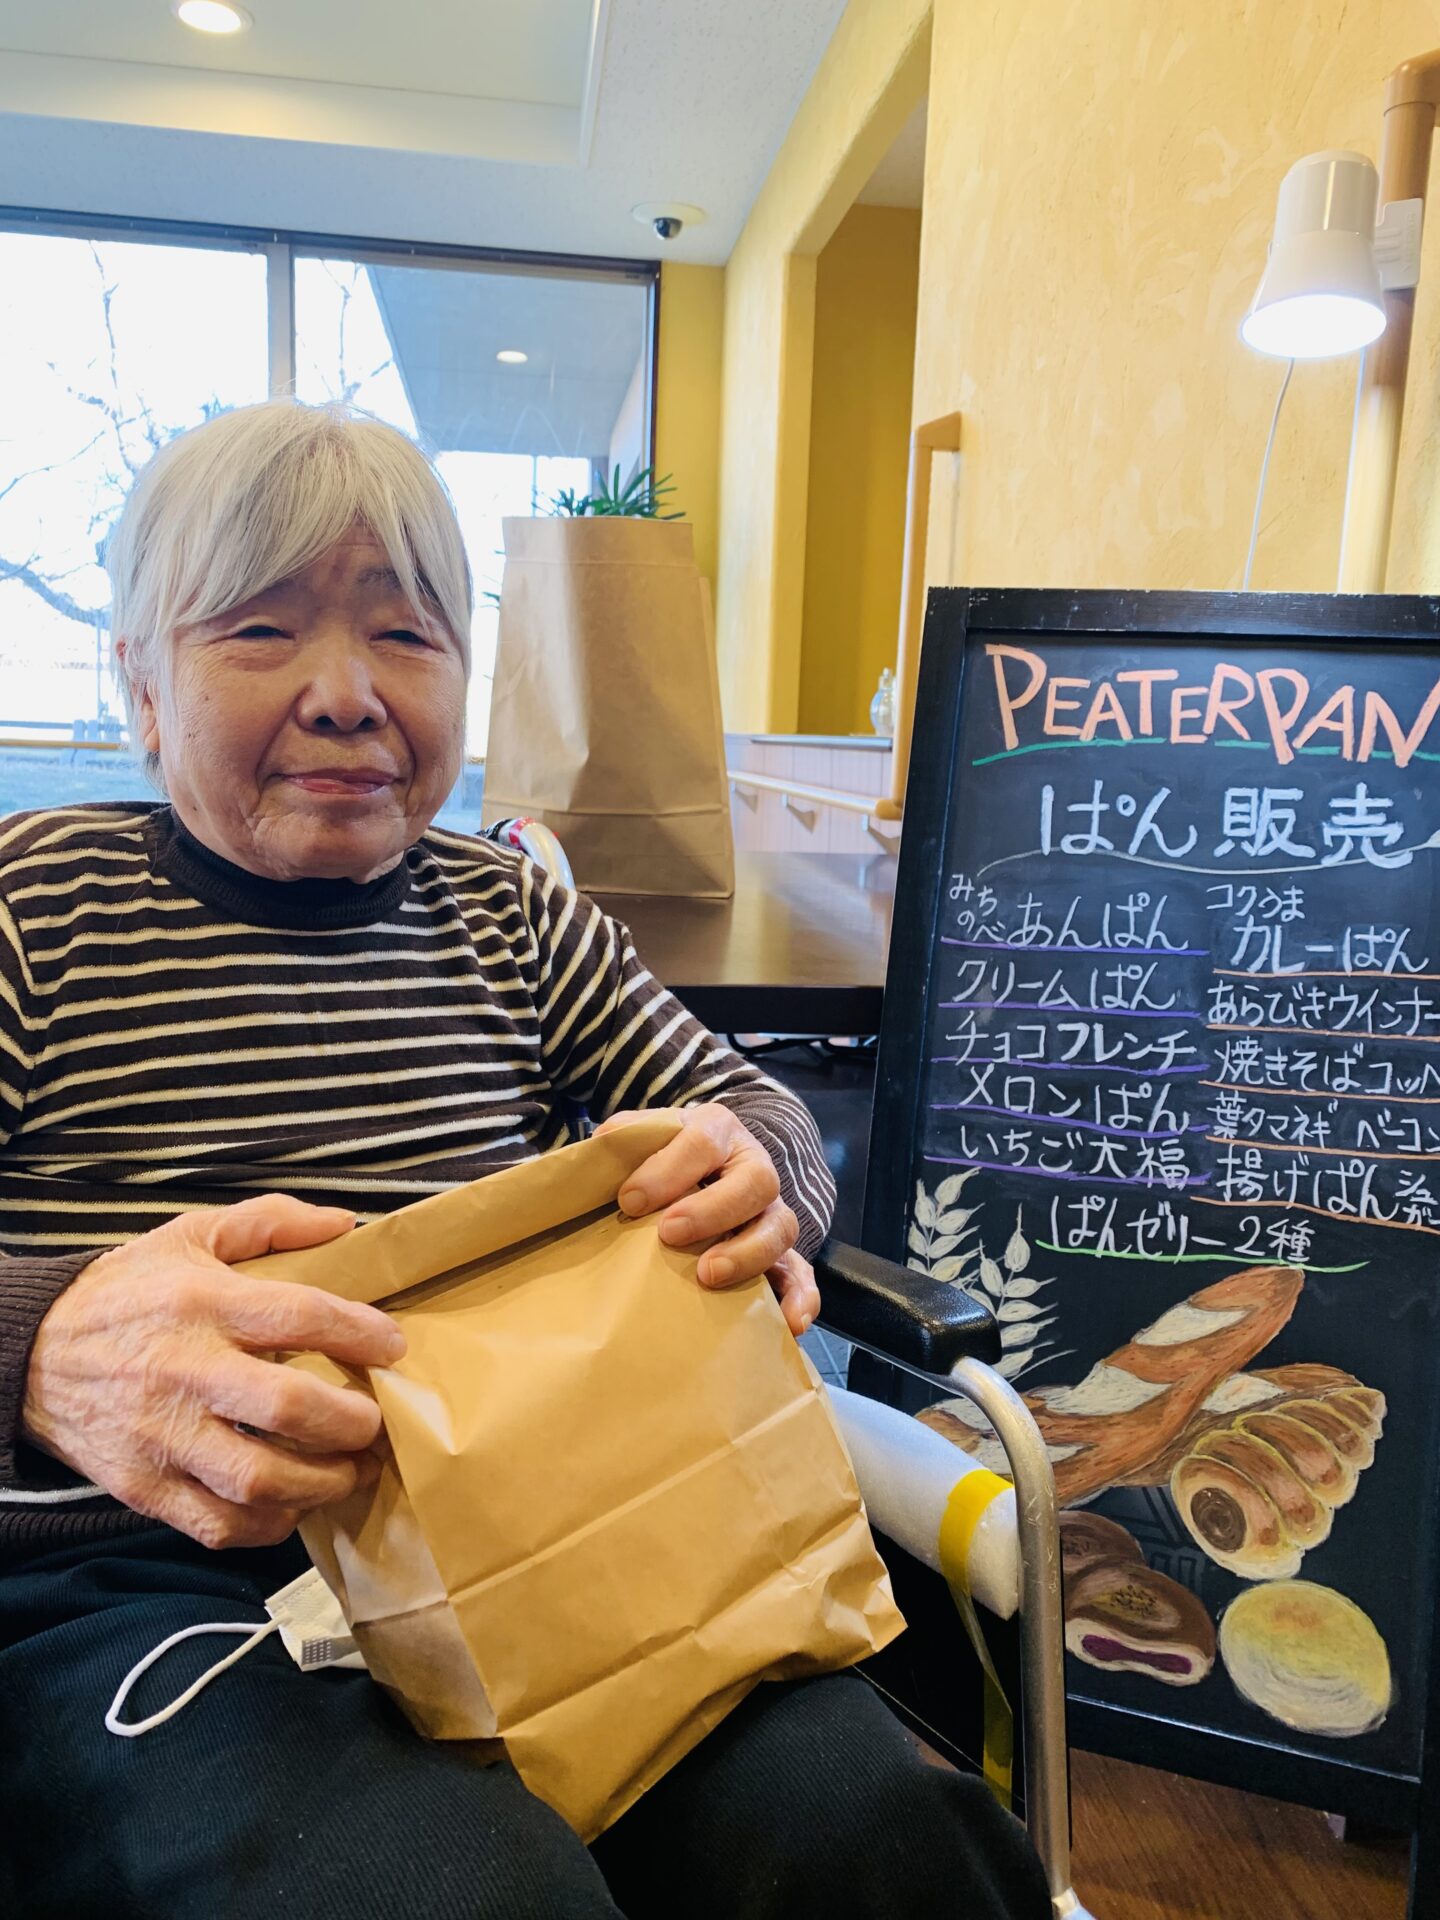 PEATERPAN
ぱん 販売
みちのべ あんぱん
クリームぱん
チョコフレンチ
メロンぱん
いちご大福
コクうま カレーぱん
あらびきウインナー
焼きそばコッペ
葉タマネギ ベーコン
揚げぱん シュガー
ぱんゼリー2種